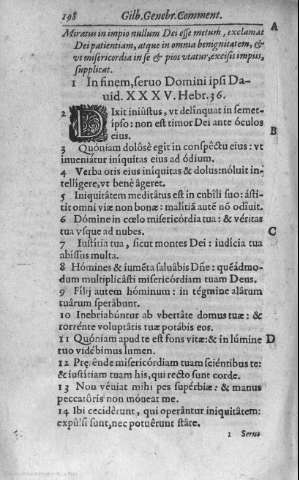 198 Gilb. Genebr. Comment.
Miratus in impio nullum Dei esse metum, exclamat
Dei patientiam, atque in omnia benignitatem, &
vt misericordia in se & pios vtatur, excisis impiis,
supplicat.
A
1 In finem, seruo Domini ipsi Da-
uid. XXXV. Hebr. 36.
2 DIxit iniústus, vt delínquat in semet-
ipso: non est timor Dei ante óculos
eius.
B
3 Quóniam dolósè egit in conspéctu eius: vt
inueniátur iníquitas eius ad ódium.
4 Verba oris eius iníquitas & dolus: nóluit in-
tellígere, vt benè ágeret.
5 Iniquitátem meditátus est in cubíli suo: ásti-
tit omni viæ non bonæ: malítiã autẽ nõ odíuit.
6 Dómine in cœlo misericórdia tua: & véritas
tua vsque ad nubes.
C
7 Iustítia tua, sicut montes Dei: iudícia tua
abíssus multa.
8 Hómines & iumẽta saluábis Dñe: quẽadmo-
dum multiplicásti misericórdiam tuam Deus.
9 Fílij autem hóminum: in tégmine alárum
tuárum sperábunt.
10 Inebriabúntur ab vbertáte domus tuæ: &
torrénte voluptátis tuæ potábis eos.
11 Quóniam apud te est fons vitæ: & in lúmine
tuo vidébimus lumen.
D
12 Præténde misericórdiam tuam sciéntibus te:
& iustítiam tuam his, qui recto sunt corde.
13 Non véniat mihi pes supérbiæ: & manus
peccatóris non móueat me.
14 Ibi cecidérunt, qui operántur iniquitátem:
expúlsi sunt, nec potuérunt stáre.
1 Seruo